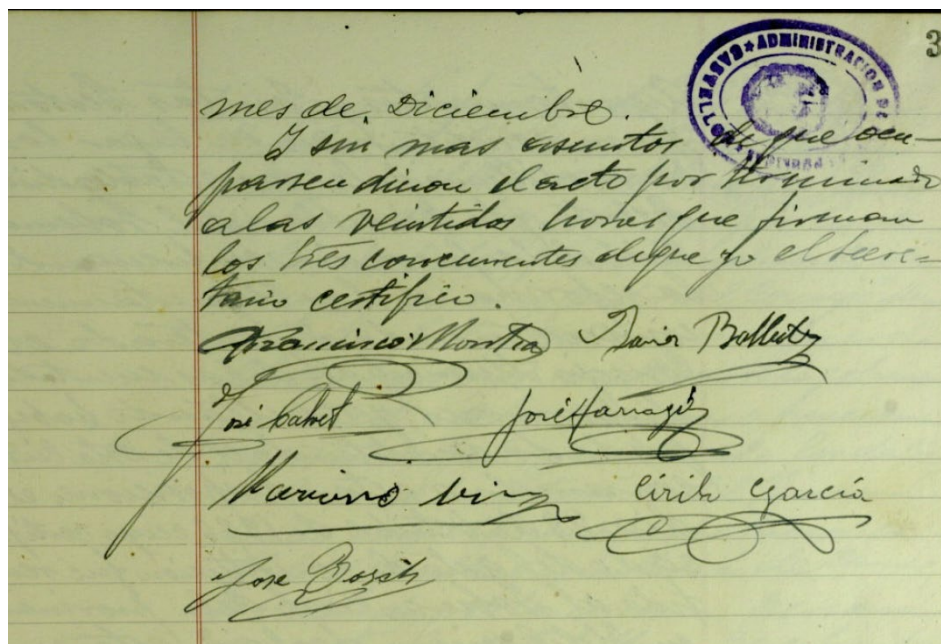 3
ADMINISTRACION DE
mes de Diciembre.
Y sin mas asuntos de que ocu-
parsen dieron el acto por terminado
a las veintidos horas que firman
los tres concurrentes de que yo el Secre-
tario certifico.
Francisco Javier
José Calvet José
Mariano Cirilo García
Jose Bosch